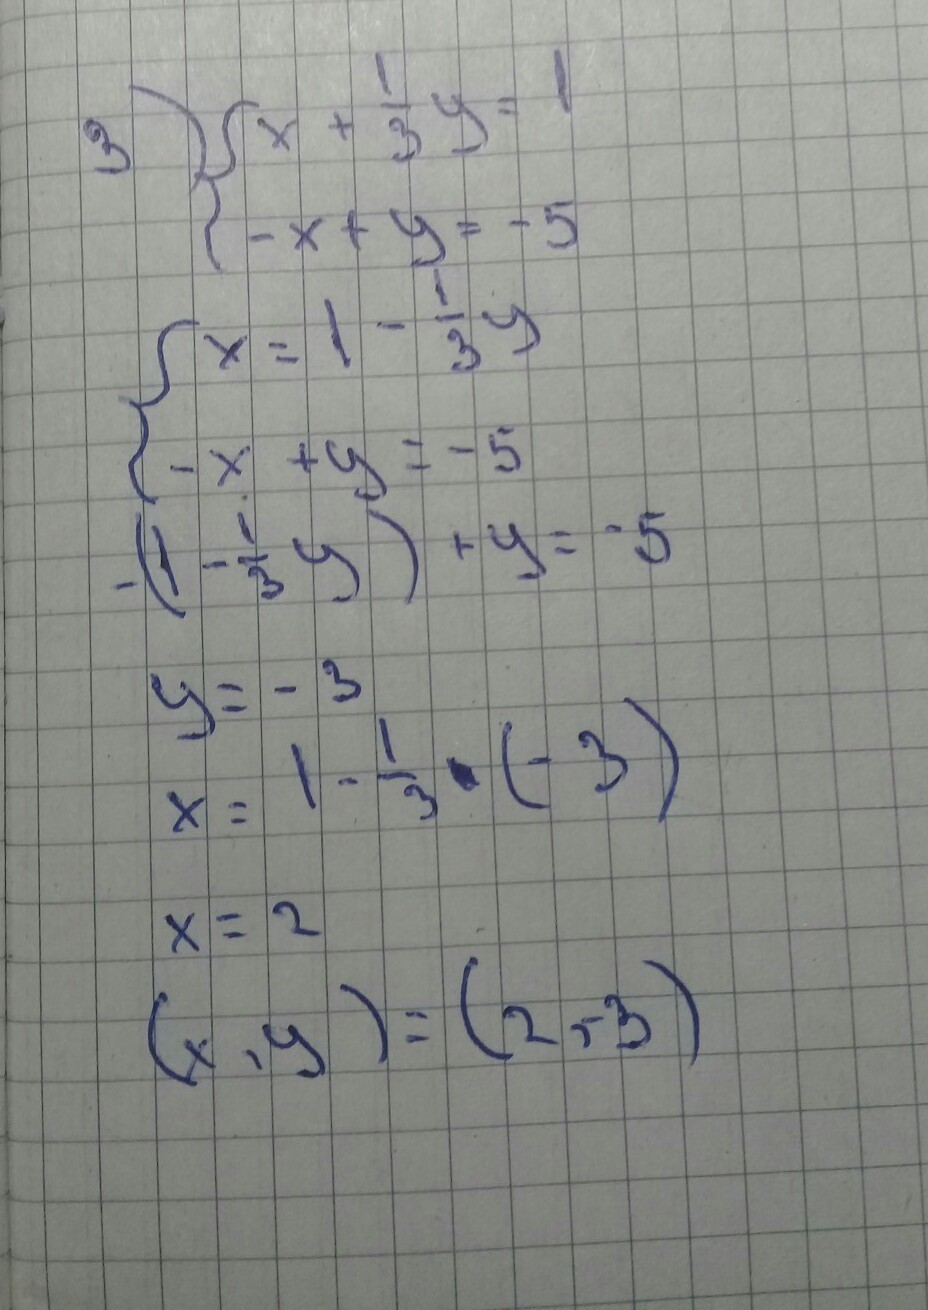 3) { x + 1/3 y = 1
- x + y = - 5
{ x = 1 - 1/3 y
- x + y = - 5
- (1 - 1/3 y) + y = - 5
y = - 3
x = 1 - 1/3 · (- 3)
x = 2
(x , y) = (2 , -3)